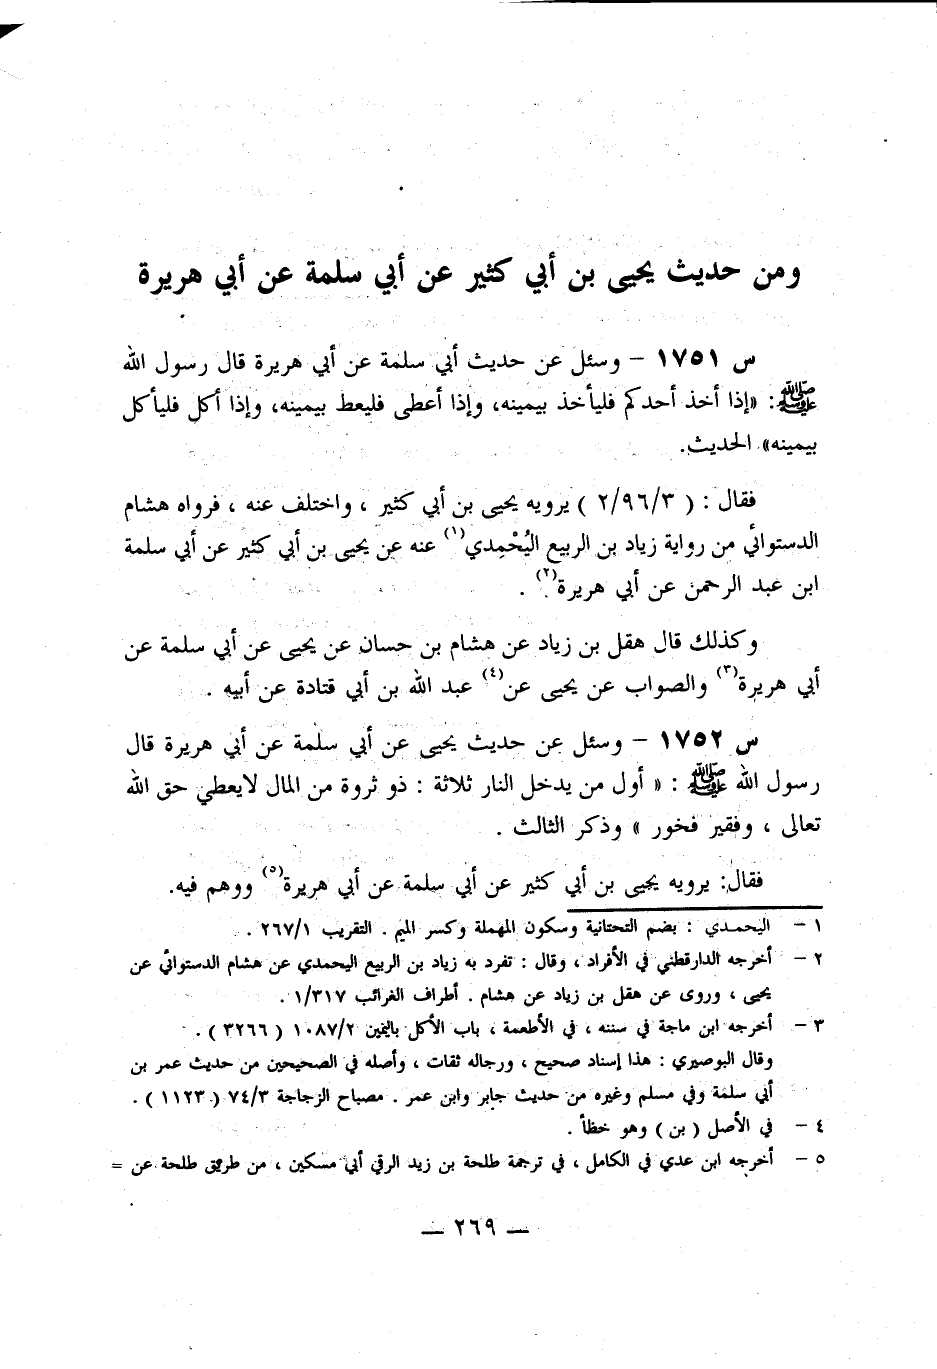 ومن حديث يحيى بن أبي كثير عن أبي سلمة عن أبي هريرة
س ١٧٥١ – وسئل عن حديث أبي سلمة عن أبي هريرة قال رسول الله
ﷺ: «إذا أخذ أحدكم فليأخذ بيمينه، وإذا أعطى فليعط بيمينه، وإذا أكل فليأكل
بيمينه» الحديث.
فقال : ( ٢/٩٦/٣ ) يرويه يحيى بن أبي كثير ، واختلف عنه ، فرواه هشام
الدستوائي من رواية زياد بن الربيع اليُحْمِدي(١) عنه عن يحيى بن أبي كثير عن أبي سلمة
ابن عبد الرحمن عن أبي هريرة(٢) .
وكذلك قال هقل بن زياد عن هشام بن حسان عن يحيى عن أبي سلمة عن
أبي هريرة(٣) والصواب عن يحيى عن(٤) عبد الله بن أبي قتادة عن أبيه .
س ١٧٥٢ – وسئل عن حديث يحيى عن أبي سلمة عن أبي هريرة قال
رسول الله ﷺ : « أول من يدخل النار ثلاثة : ذو ثروة من المال لايعطي حق الله
تعالى ، وفقير فخور » وذكر الثالث .
فقال: يرويه يحيى بن أبي كثير عن أبي سلمة عن أبي هريرة(٥) ووهم فيه.
١ – اليحمدي : بضم التحتانية وسكون المهملة وكسر الميم . التقريب ٢٦٧/١ .
٢ – أخرجه الدارقطني في الأفراد ، وقال : تفرد به زياد بن الربيع اليحمدي عن هشام الدستوائي عن
يحيى ، وروى عن هقل بن زياد عن هشام . أطراف الغرائب ١/٣١٧ .
٣ – أخرجه ابن ماجة في سننه ، في الأطعمة ، باب الأكل باليمين ١٠٨٧/٢ ( ٣٢٦٦ ) .
وقال البوصيري : هذا إسناد صحيح ، ورجاله ثقات ، وأصله في الصحيحين من حديث عمر بن
أبي سلمة وفي مسلم وغيره من حديث جابر وابن عمر . مصباح الزجاجة ٧٤/٣ ( ١١٢٣ ) .
٤ – في الأصل ( بن ) وهو خظأ .
٥ – أخرجه ابن عدي في الكامل ، في ترجمة طلحة بن زيد الرقي أبي مسكين ، من طريق طلحة عن =
— ٢٦٩ —